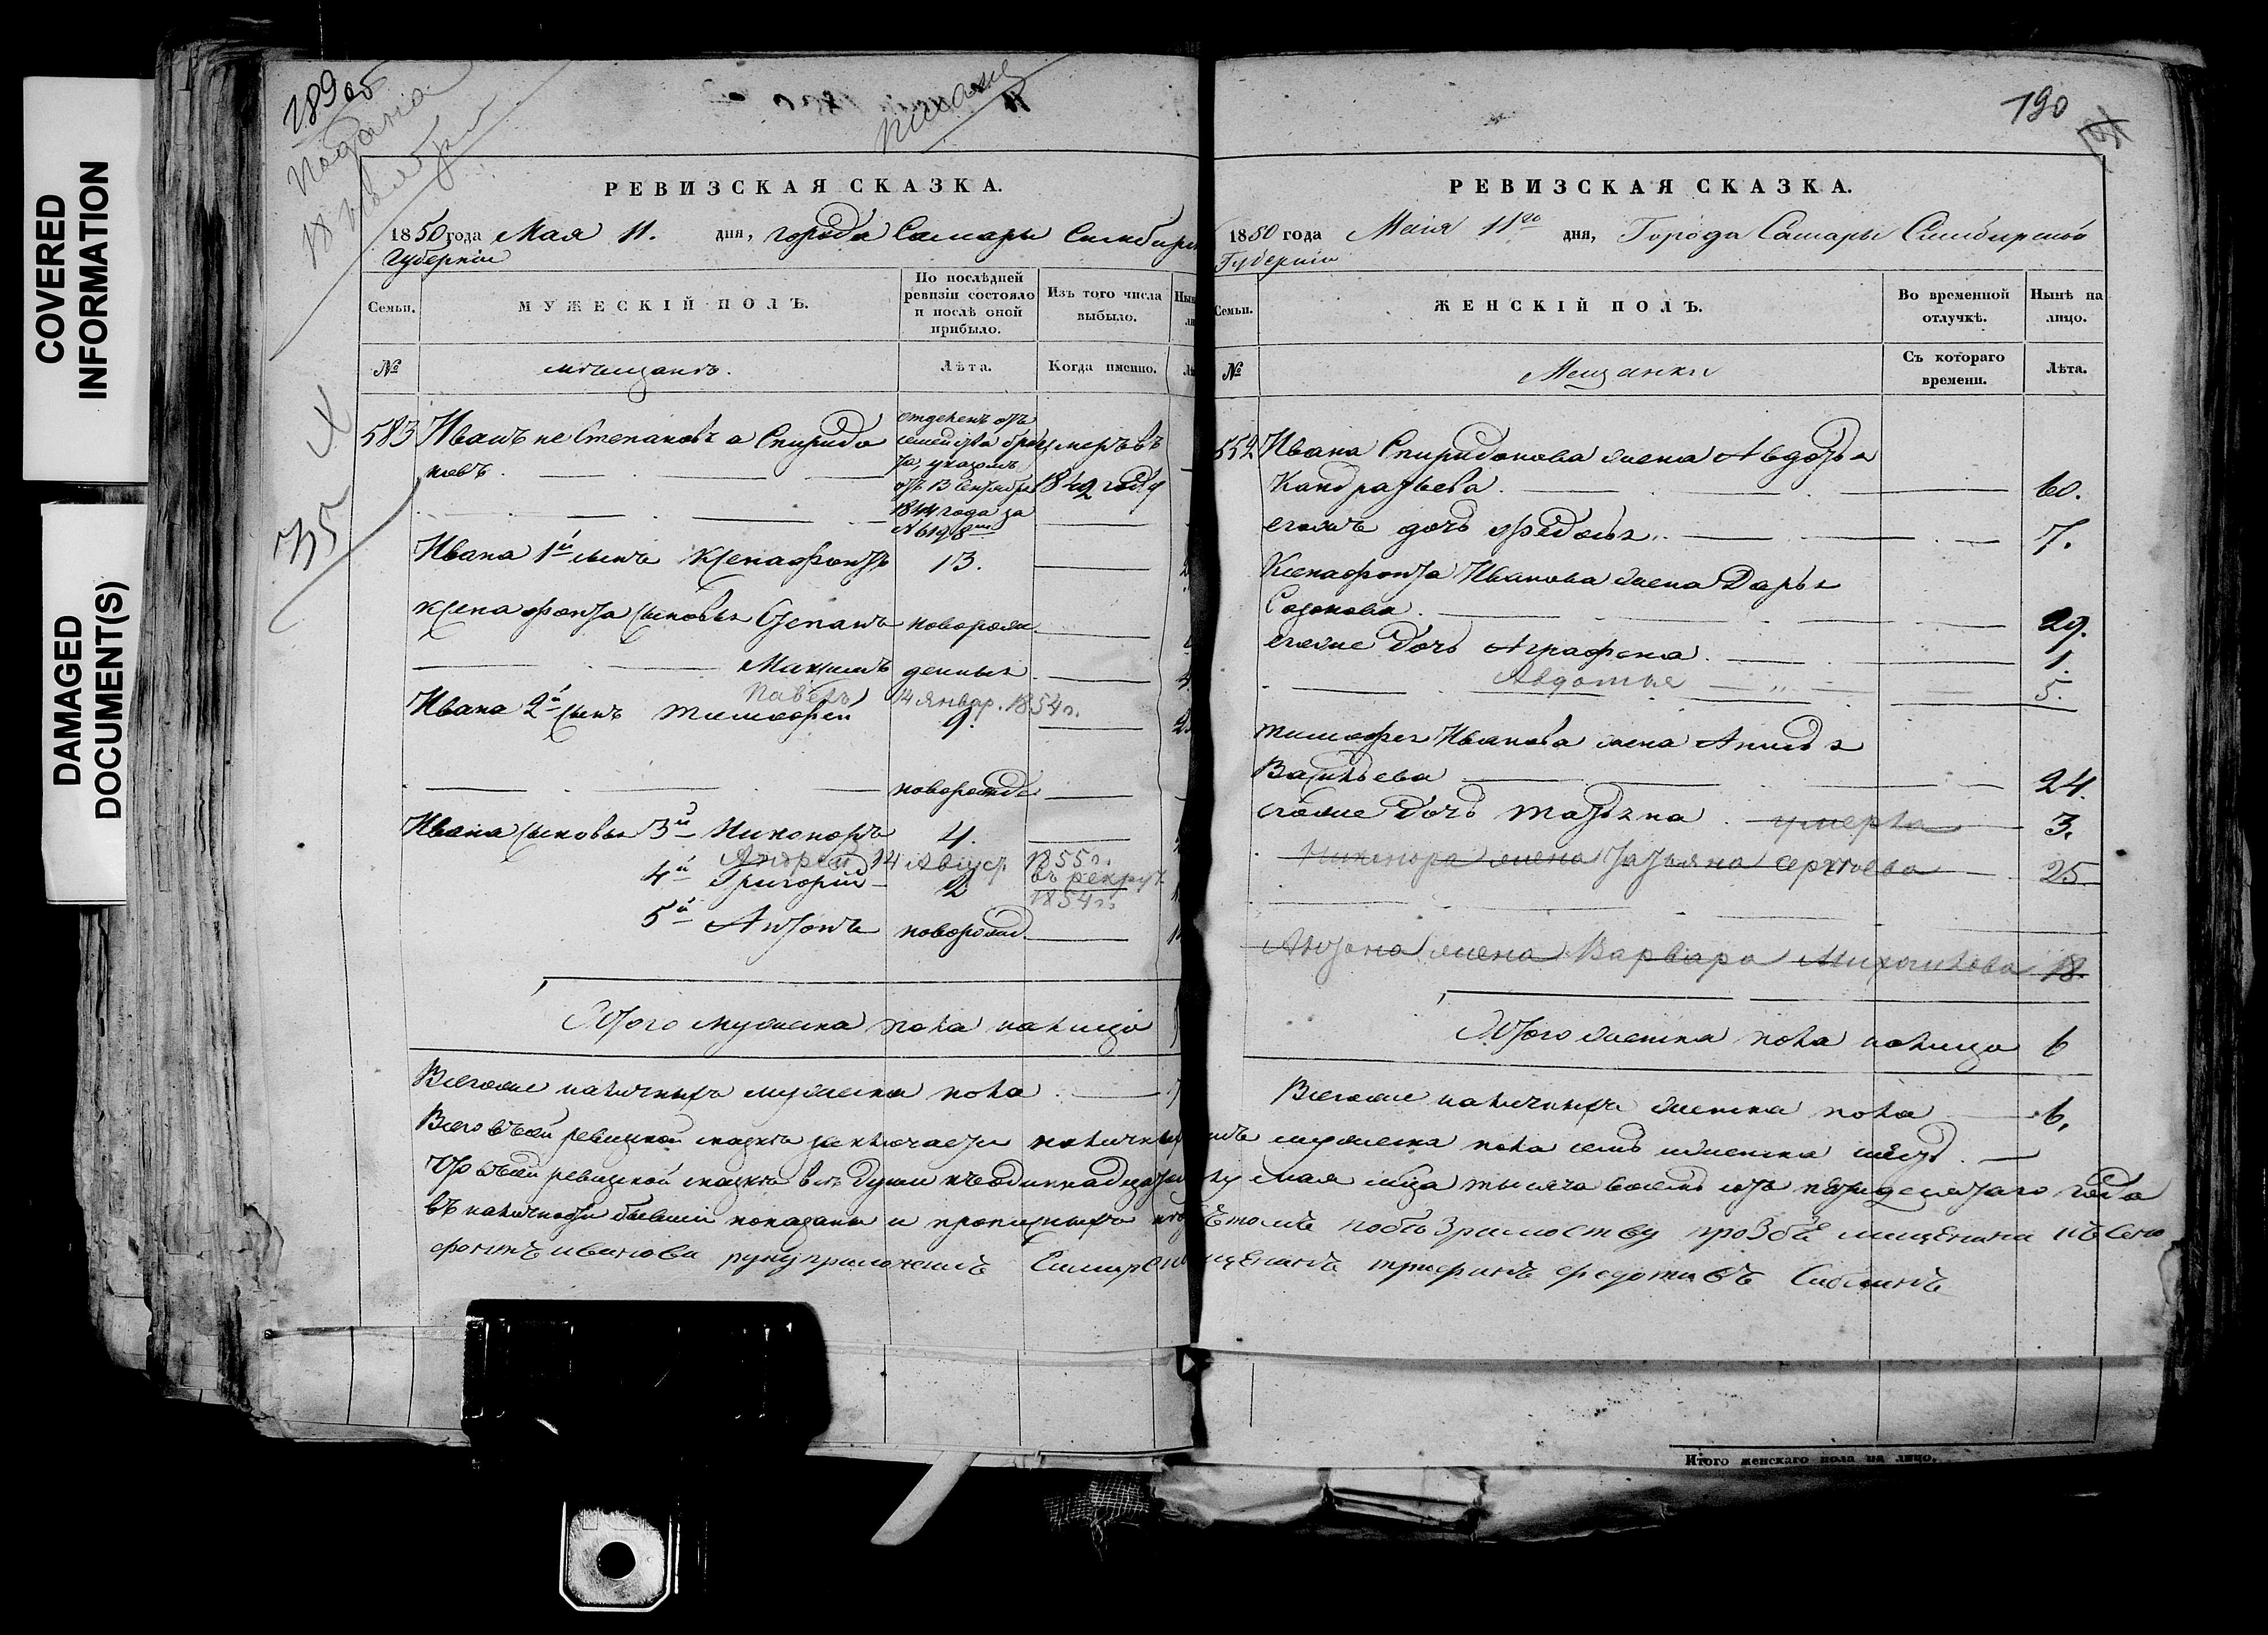 COVERED
INFORMATION
DAMAGED
DOCUMENT(S)
189 об
Подана
писана
РЕВИЗСКАЯ СКАЗКА.
1850 года Мая 11. дня, города Самары Симбирс
Губернии
Семьи.
МУЖЕСКІЙ ПОЛЪ.
По послѣдней
ревизіи состояло
и послѣ оной
прибыло.
Изъ того числа
выбыло.
№
мѣщанъ.
Лѣта.
Когда именно.
583 Иванъ не Степановъ а Спиридо
новъ.
отделенъ отъ
семейства бра
та, указомъ
отъ 13 Сентября
1844 года за
№ 6198
умеръ въ
1849 году
Ивана 1й сынъ Ксенафонтъ 13.
Ксенафонта сыновья Степанъ новорож
Максимъ денныя
Павелъ 14 январ. 1854 г.
Ивана 2й сынъ Тимофей 9.
новорожде
Ивана сыновья 3й Никоноръ 4.
Андрей 14 Август 1855 г.
4й Григорій 2 въ рекрут
1854 г.
5й Антонъ новорожд.
Итого мужеска пола налицо
Всегоже наличныхъ мужеска пола
35
190
РЕВИЗСКАЯ СКАЗКА.
1850 года Маія 11го дня, Города Самары Симбирской
Губерніи
Семьи.
ЖЕНСКІЙ ПОЛЪ.
Во временной
отлучкѣ.
Нынѣ на
лицо.
№
Мещанки
Съ котораго
времени.
Лѣта.
552 Ивана Спиридонова жена Авдотья
Кандратьева. 60.
егожъ дочь Федосья 7.
Ксенафонта Ивановa жена Дарья
Созонова. 29.
егоже дочь Аграфена. 1.
Авдотья 5.
Тимофея Иванова жена Анисья
Васильева 24.
егоже дочь Татьяна умерла 3.
Никонора жена Татьяна Сергеева 25.
Антона жена Варвара Михайлова 18.
Итого женска пола налицо 6
Всегоже наличныхъ женска пола 6.
Всего въ сей ревизкой сказке заключается наличныхъ мужеска пола семь и женска шесть.
Что въ сей ревизкой сказке все души къ одиннадцатому мая мца тысяча восемь сотъ пятидесятаго года
въ наличности бывшии показаны и прописныхъ нетъ
фонтъ иванова руку приложилъ мещанинъ трофимъ федотовъ
Итого женскаго пола на лицо.